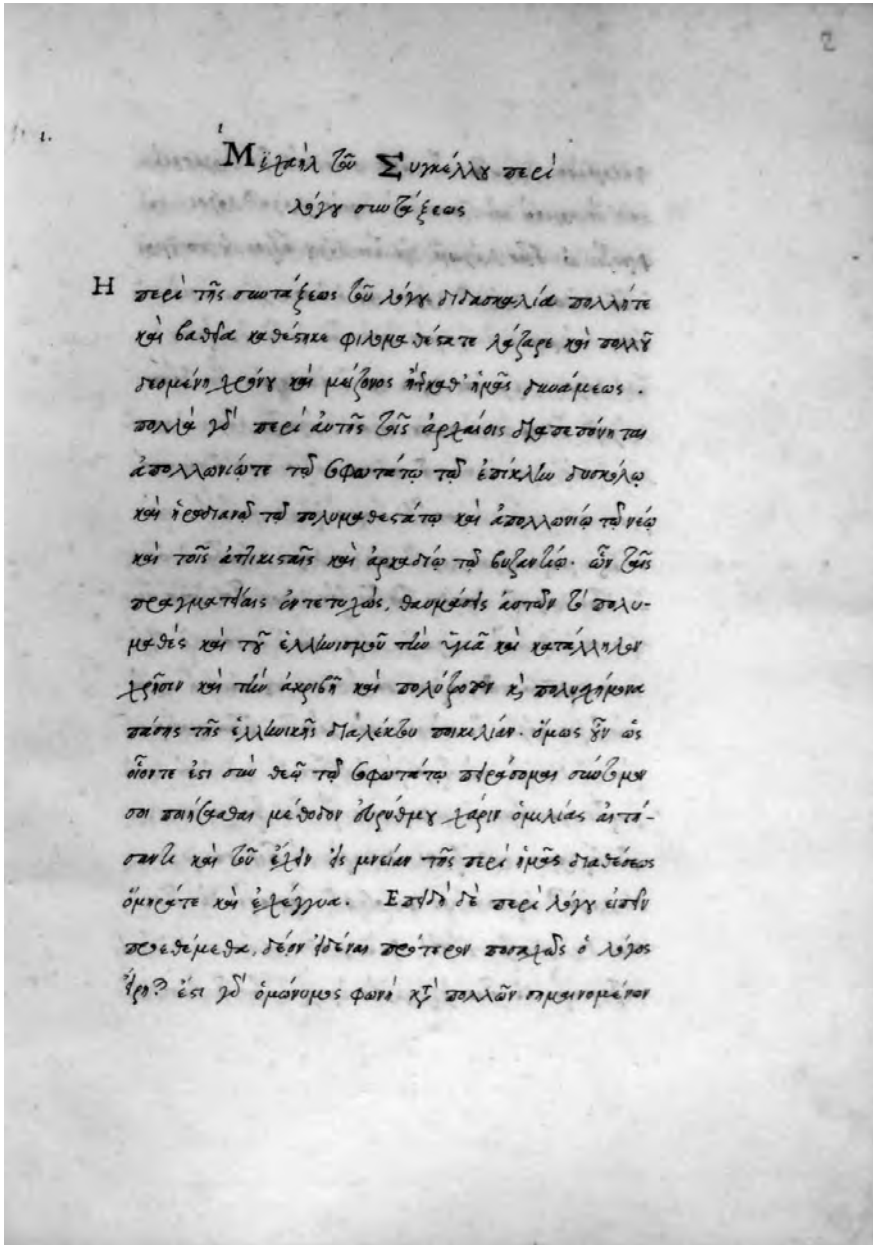 2
ι.
Μιχαὴλ τοῦ Συγκέλλου περὶ
λόγου συντάξεως
Η περὶ τῆς συντάξεως τοῦ λόγου διδασκαλία πολλήτε
καὶ βαθεῖα καθέστηκε φιλομαθέστατε λάζαρε καὶ πολλοῦ
δεομένη χρόνου καὶ μείζονος ἢ καθ' ἡμᾶς δυνάμεως.
πολλὰ γὰρ περὶ αὐτῆς τοῖς ἀρχαίοις διαπεπόνηται
ἀπολλωνίῳτε τῷ σοφωτάτῳ τῷ ἐπίκλην δυσκόλῳ
καὶ ἡρωδιανῷ τῷ πολυμαθεστάτῳ καὶ ἀπολλωνίῳ τῷ νέῳ
καὶ τοῖς ἀττικισταῖς καὶ ἀρκαδίῳ τῷ βυζαντίῳ. ὧν ταῖς
πραγματείαις ἐντετυχὼς, θαυμάσεις αὐτῶν τὸ πολυ-
μαθὲς καὶ τοῦ ἑλληνισμοῦ τὴν καὶ κατάλληλον
χρῆσιν καὶ τὴν ἀκριβῆ καὶ πολύτροπον κ, πολυσχήμονα
πάσης τῆς ἑλληνικῆς διαλέκτου ποικιλίαν. ὅμως οὖν ὡς
οἷόντε ἐστι σὺν θεῷ τῷ σοφωτάτῳ πειράσομαι σύντομον
σοι ποιήσασθαι μέθοδον εὐρύθμου χάριν ὁμιλίας αἰτή-
σαντι καὶ τοῦ ἐλθεῖν εἰς μνείαν τῆς περὶ ἡμᾶς διαθέσεως
ὅμηράτε καὶ ἐχέγγυα. Επειδὴ δὲ περὶ λόγου εἰπεῖν
προεθέμεθα, δέον εἰδέναι πρότερον ποσαχῶς ὁ λόγος
εἴρηται ἔστι γὰρ ὁμώνυμος φωνὴ κατὰ πολλῶν σημαινομένων